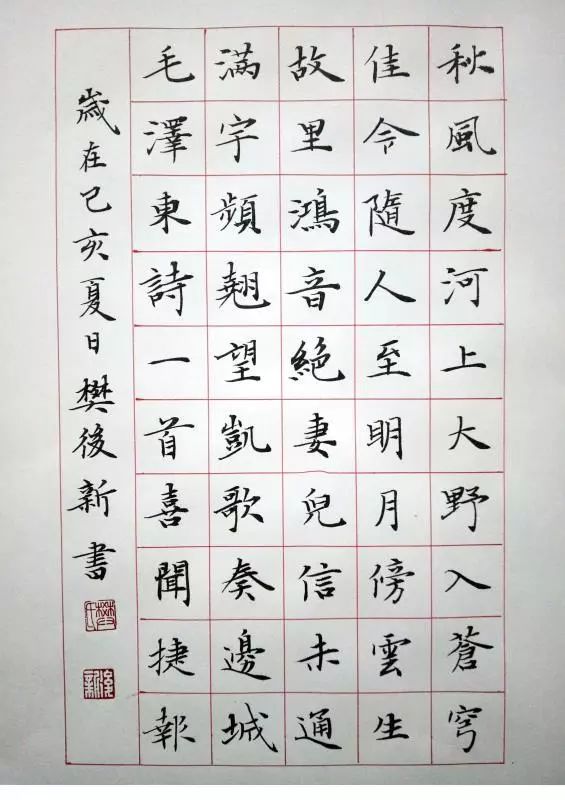 秋風度河上大野入蒼穹
佳令隨人至明月傍雲生
故里鴻音絕妻兒信未通
滿宇頻翹望凱歌奏邊城
毛澤東詩一首喜聞捷報
歲在己亥夏日樊後新書
樊氏
後新